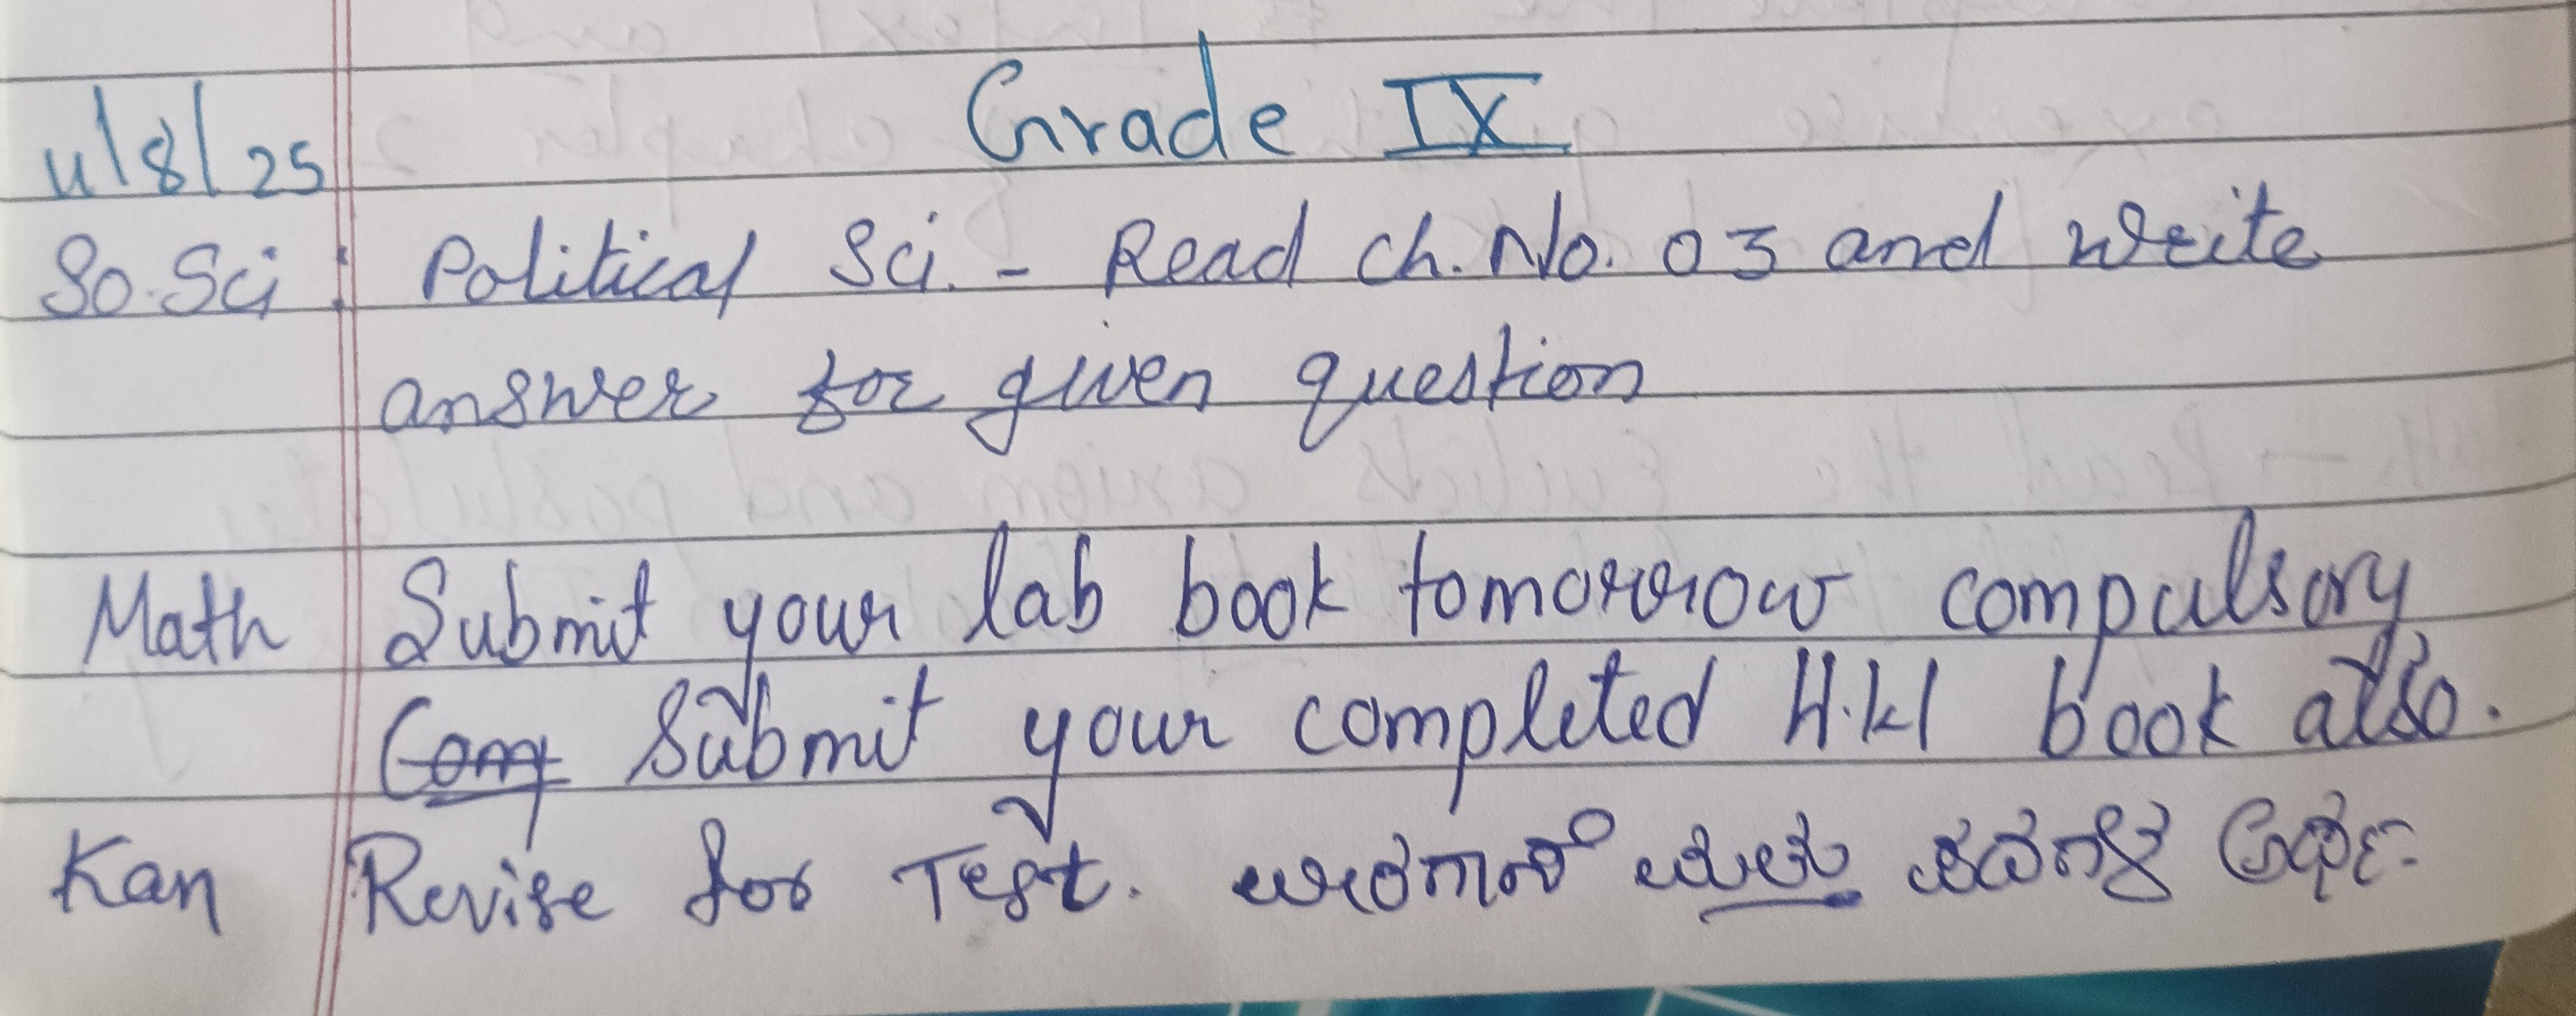 Grade IX
11/8/25
So.Sci : Political Sci. - Read ch. No. 03 and write
answer for given question
Math Submit your lab book tomorrow compulsory
Submit your completed H.W book also.
Kan Revise for Test.